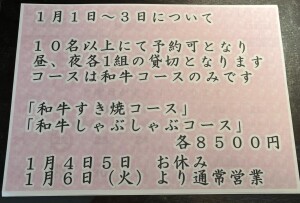 1月1日～3日について
10名以上にて予約可となり
昼、夜各1組の貸切となります
コースは和牛コースのみです
「和牛すき焼コース」
「和牛しゃぶしゃぶコース」
各8500円
1月4日5日　お休み
1月6日（火）より通常営業